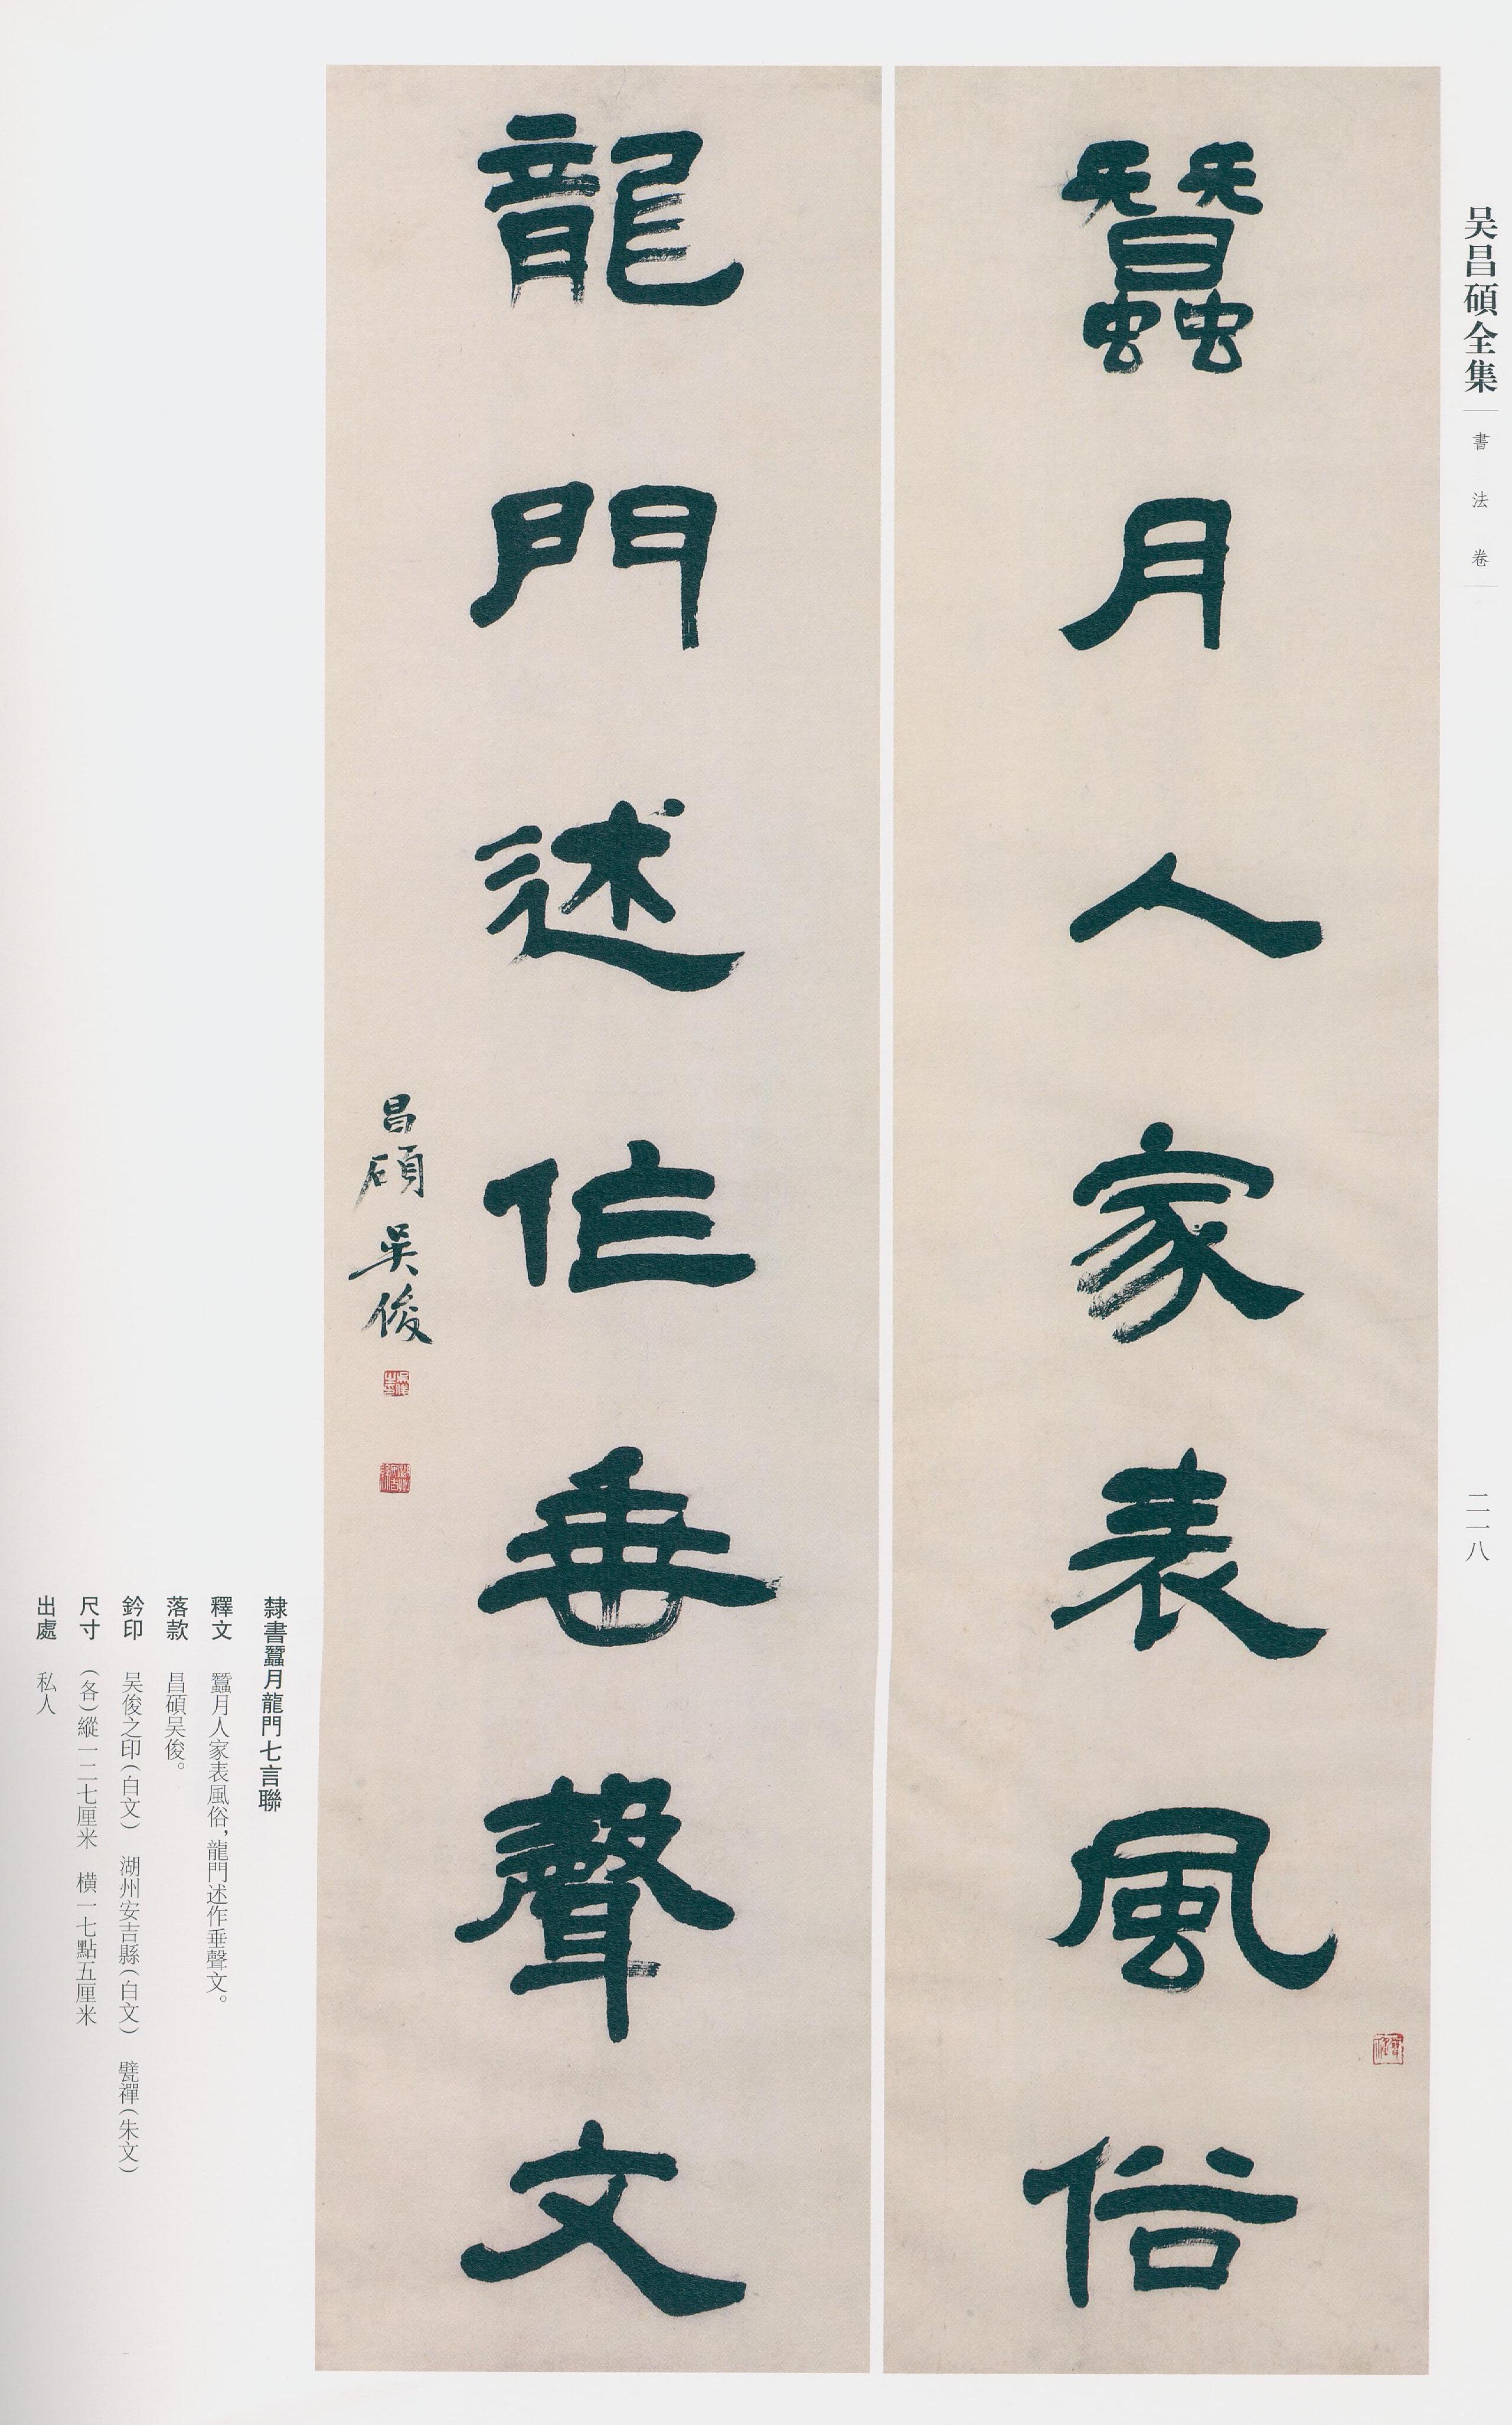 吴昌碩全集
書法卷
二一八
蠶月人家表風俗
龍門述作垂聲文
昌碩吴俊
隸書蠶月龍門七言聯
釋文 蠶月人家表風俗，龍門述作垂聲文。
落款 昌碩吴俊。
鈐印 吴俊之印（白文） 湖州安吉縣（白文） 甓禪（朱文）
尺寸 （各）縱一二七厘米 橫一七點五厘米
出處 私人